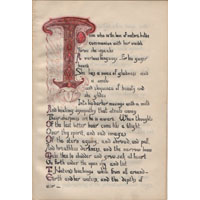 To him who in the love of nature holds
communion with her visible
forms she speaks
A various language; for his gayer
hours
She has a voice of gladness and
a smile
And eloquence of beauty and
she glides
Into his darker musings with a mild
And healing sympathy that steals away
Their sharpness ere he is aware. When thoughts
Of the last bitter hour come like a blight
Over thy spirit, and sad images
Of the stern agony, and shroud, and pall,
And breathless darkness, and the narrow house
Make thee to shudder and grow sick at heart
Go forth under the open sky and list
To Nature's teachings while from all around—
Earth and her waters, and the depths of
air—